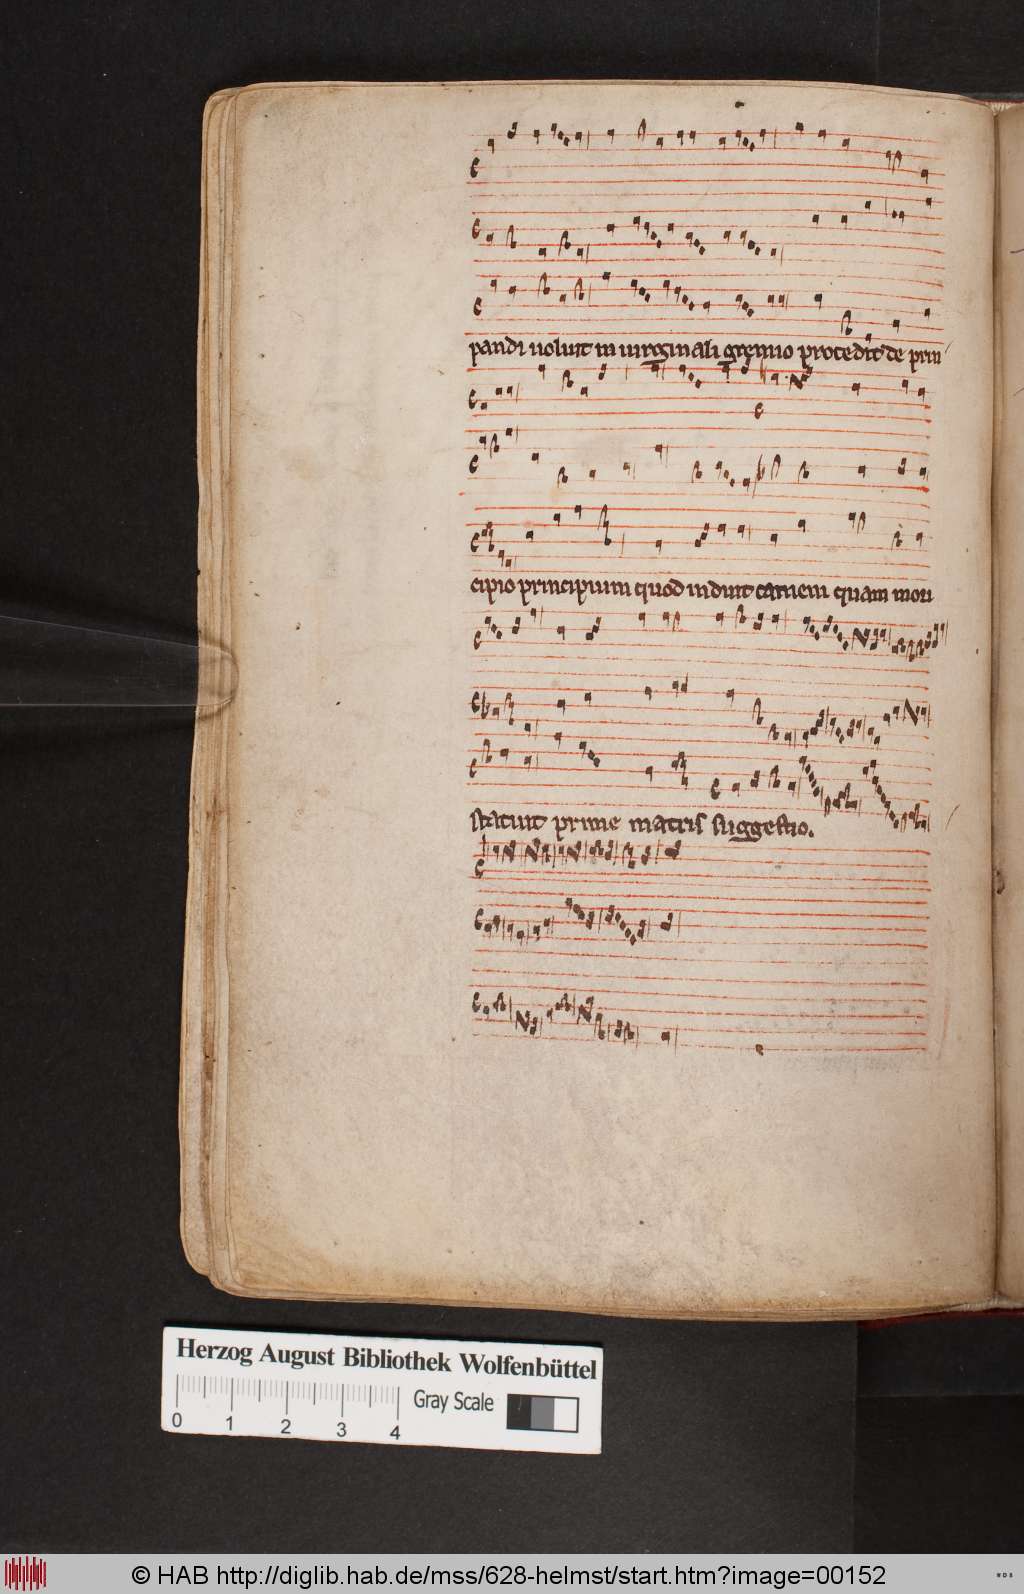 pandi uoluit in uirginali gremio procedit de prin
cipio principium quod induit carnem quam mori
statuit prime matris suggestio.
Herzog August Bibliothek Wolfenbüttel
Gray Scale
0 1 2 3 4
© HAB http://diglib.hab.de/mss/628-helmst/start.htm?image=00152